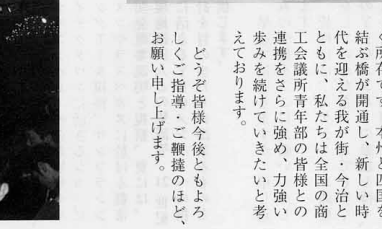 く所存です。本州と四国を
結ぶ橋が開通し、新しい時
代を迎える我が街・今治と
ともに、私たちは全国の商
工会議所青年部の皆様との
連携をさらに強め、力強い
歩みを続けていきたいと考
えております。
どうぞ皆様今後ともよろ
しくご指導・ご鞭撻のほど、
お願い申し上げます。